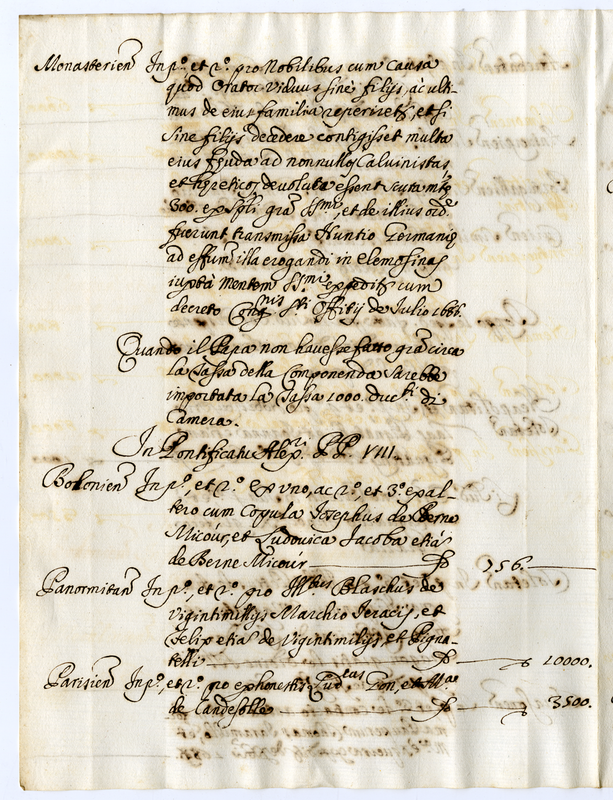 Monasterien̄ In p.º et 2.º pro Nobilibus cum causa
quod Orator viduus sinè filijs, ac ulti-
mus de eius familia reperiretʳ, et si
sine filijs decedere contigisset multa
eius feuda ad nonnullos Caluinistas,
et hereticos devoluta essent scuta mᵗᵉ
300. ex spli grā SS.ᵐⁱ, et de illius ord.ᵉ
fuerunt transmissa Nuntio Germanię
ad effūm illa erogandi in elemosinas
iuxtà mentem SS.ᵐⁱ expedit cum
decreto Congnis Sti Offitij de Julio 1686.
Quando il Papa non havesse fatto grā circa
la Tassa della Componenda sarebbe
importata la Tassa 1000. ducti di
Camera.
In Pontificatu Alex.ʳⁱ PP. VIII.
Bolonien̄ In p.º, et 2.º ex uno, ac 2.º, et 3.º ex al-
tero cum Copula Josephus de Berne
Micoùr, et Ludovica Jacoba etiā
de Berne Micoùr 156.
Panormitan̄ In p.º, et 2.º pro Illbus Blaschus de
Vigintimillijs Marchio Jeracij, et
Felix etiā de Vigintimilijs, et Pigna-
telli 10000.
Parisien̄ In p.º, et 2.º pro ex honestis Lud.cus Pon, et Mae
de Candesolle 3500.